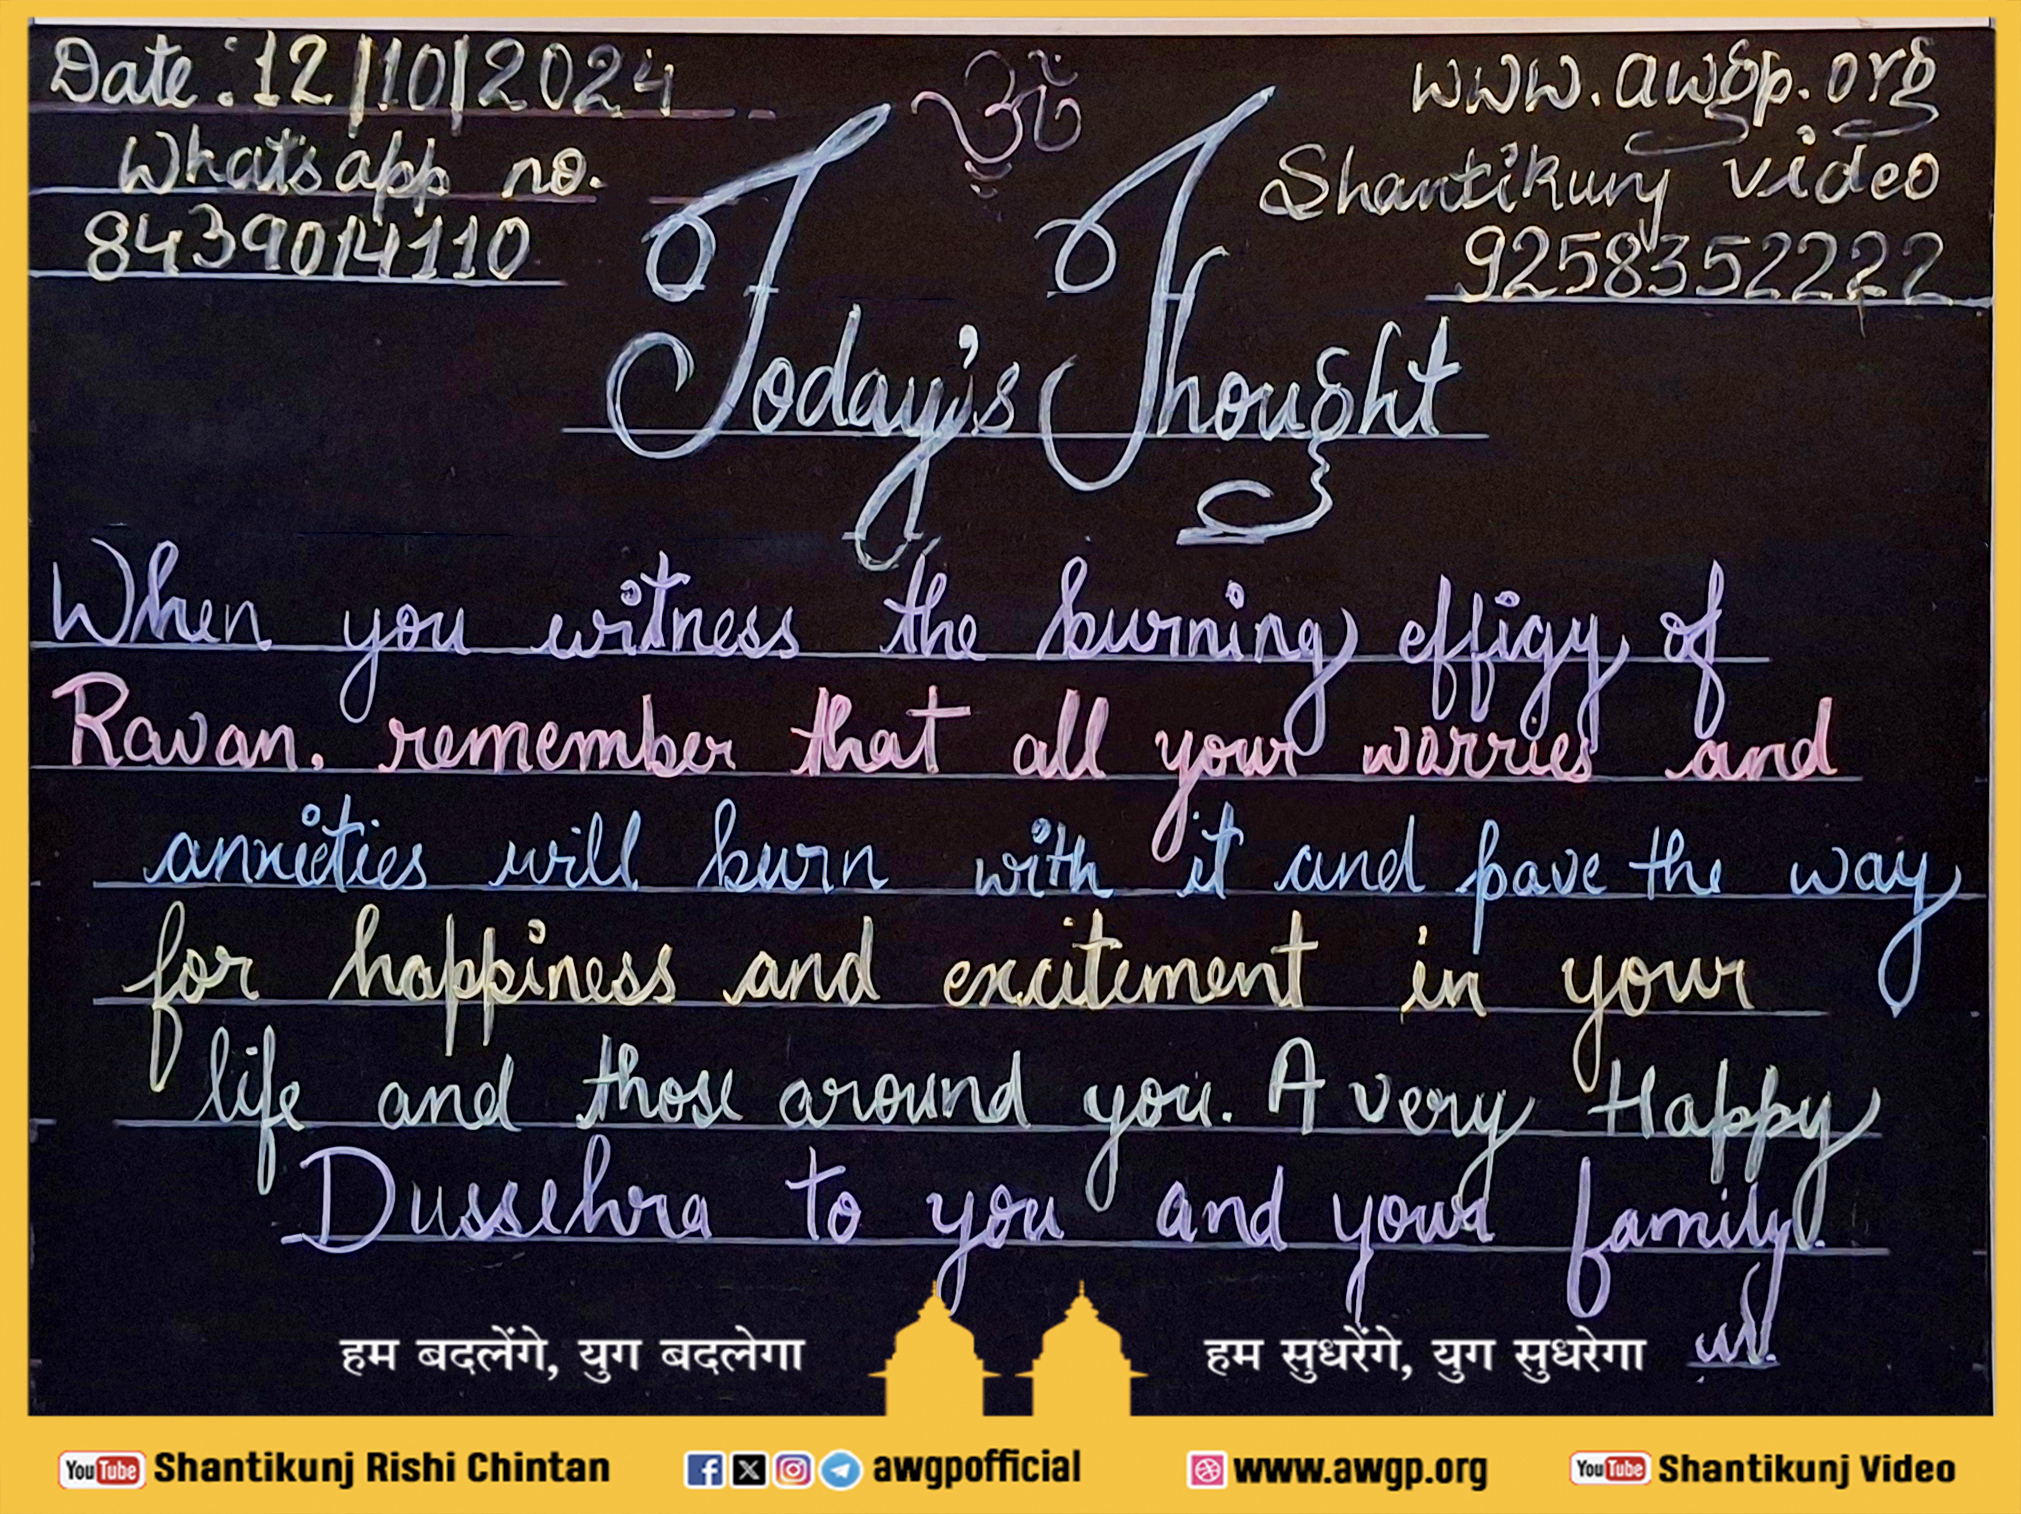 Date: 12/10/2024
Whatsapp no.
8439014110
ॐ
www.awgp.org
Shantikunj video
9258352222
Today's Thought
When you witness the burning effigy of
Ravan, remember that all your worries and
anxieties will burn with it and pave the way
for happiness and excitement in your
life and those around you. A very Happy
Dussehra to you and your family.
हम बदलेंगे, युग बदलेगा
हम सुधरेंगे, युग सुधरेगा
YouTube Shantikunj Rishi Chintan
awgpofficial
www.awgp.org
YouTube Shantikunj Video